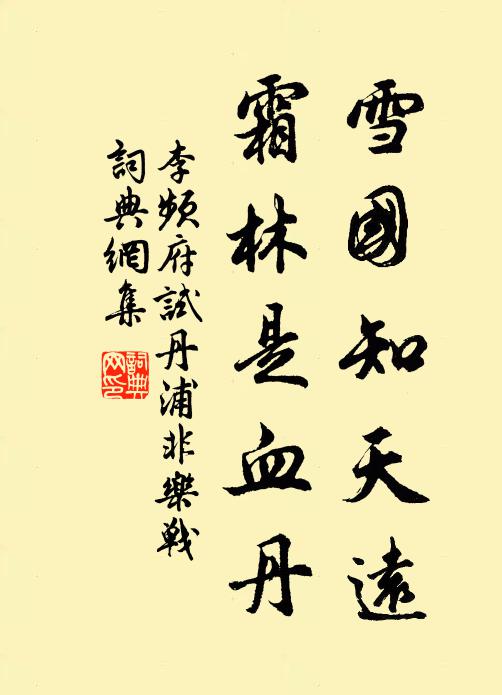 雪國知天遠
霜林是血丹
李頻府試丹浦非樂戰
詞典網集
詞典網印